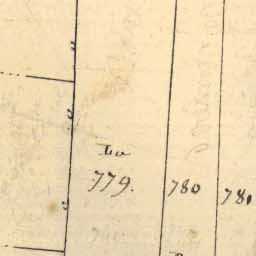 779. 780 781